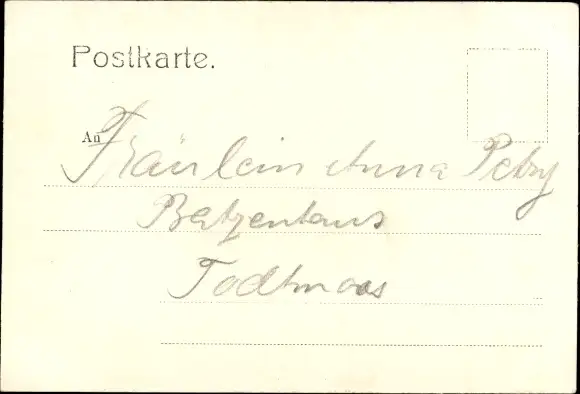 Postkarte.
An
Fräulein Anna Petry
Batzenhaus
Todtmoos